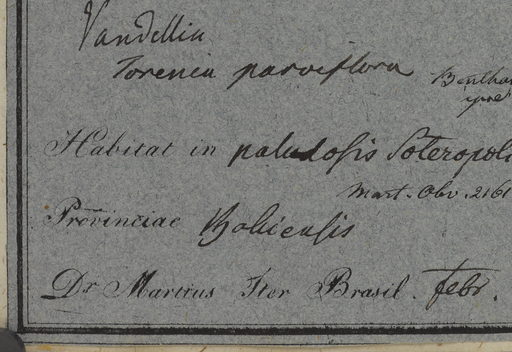 Vandellia
Torenia parviflora Bentham
ipse
Habitat in paludosis Soteropoli
Mart. Obs. 2161
Provinciae Bahiensis
Dr Martius Iter Brasil. febr.